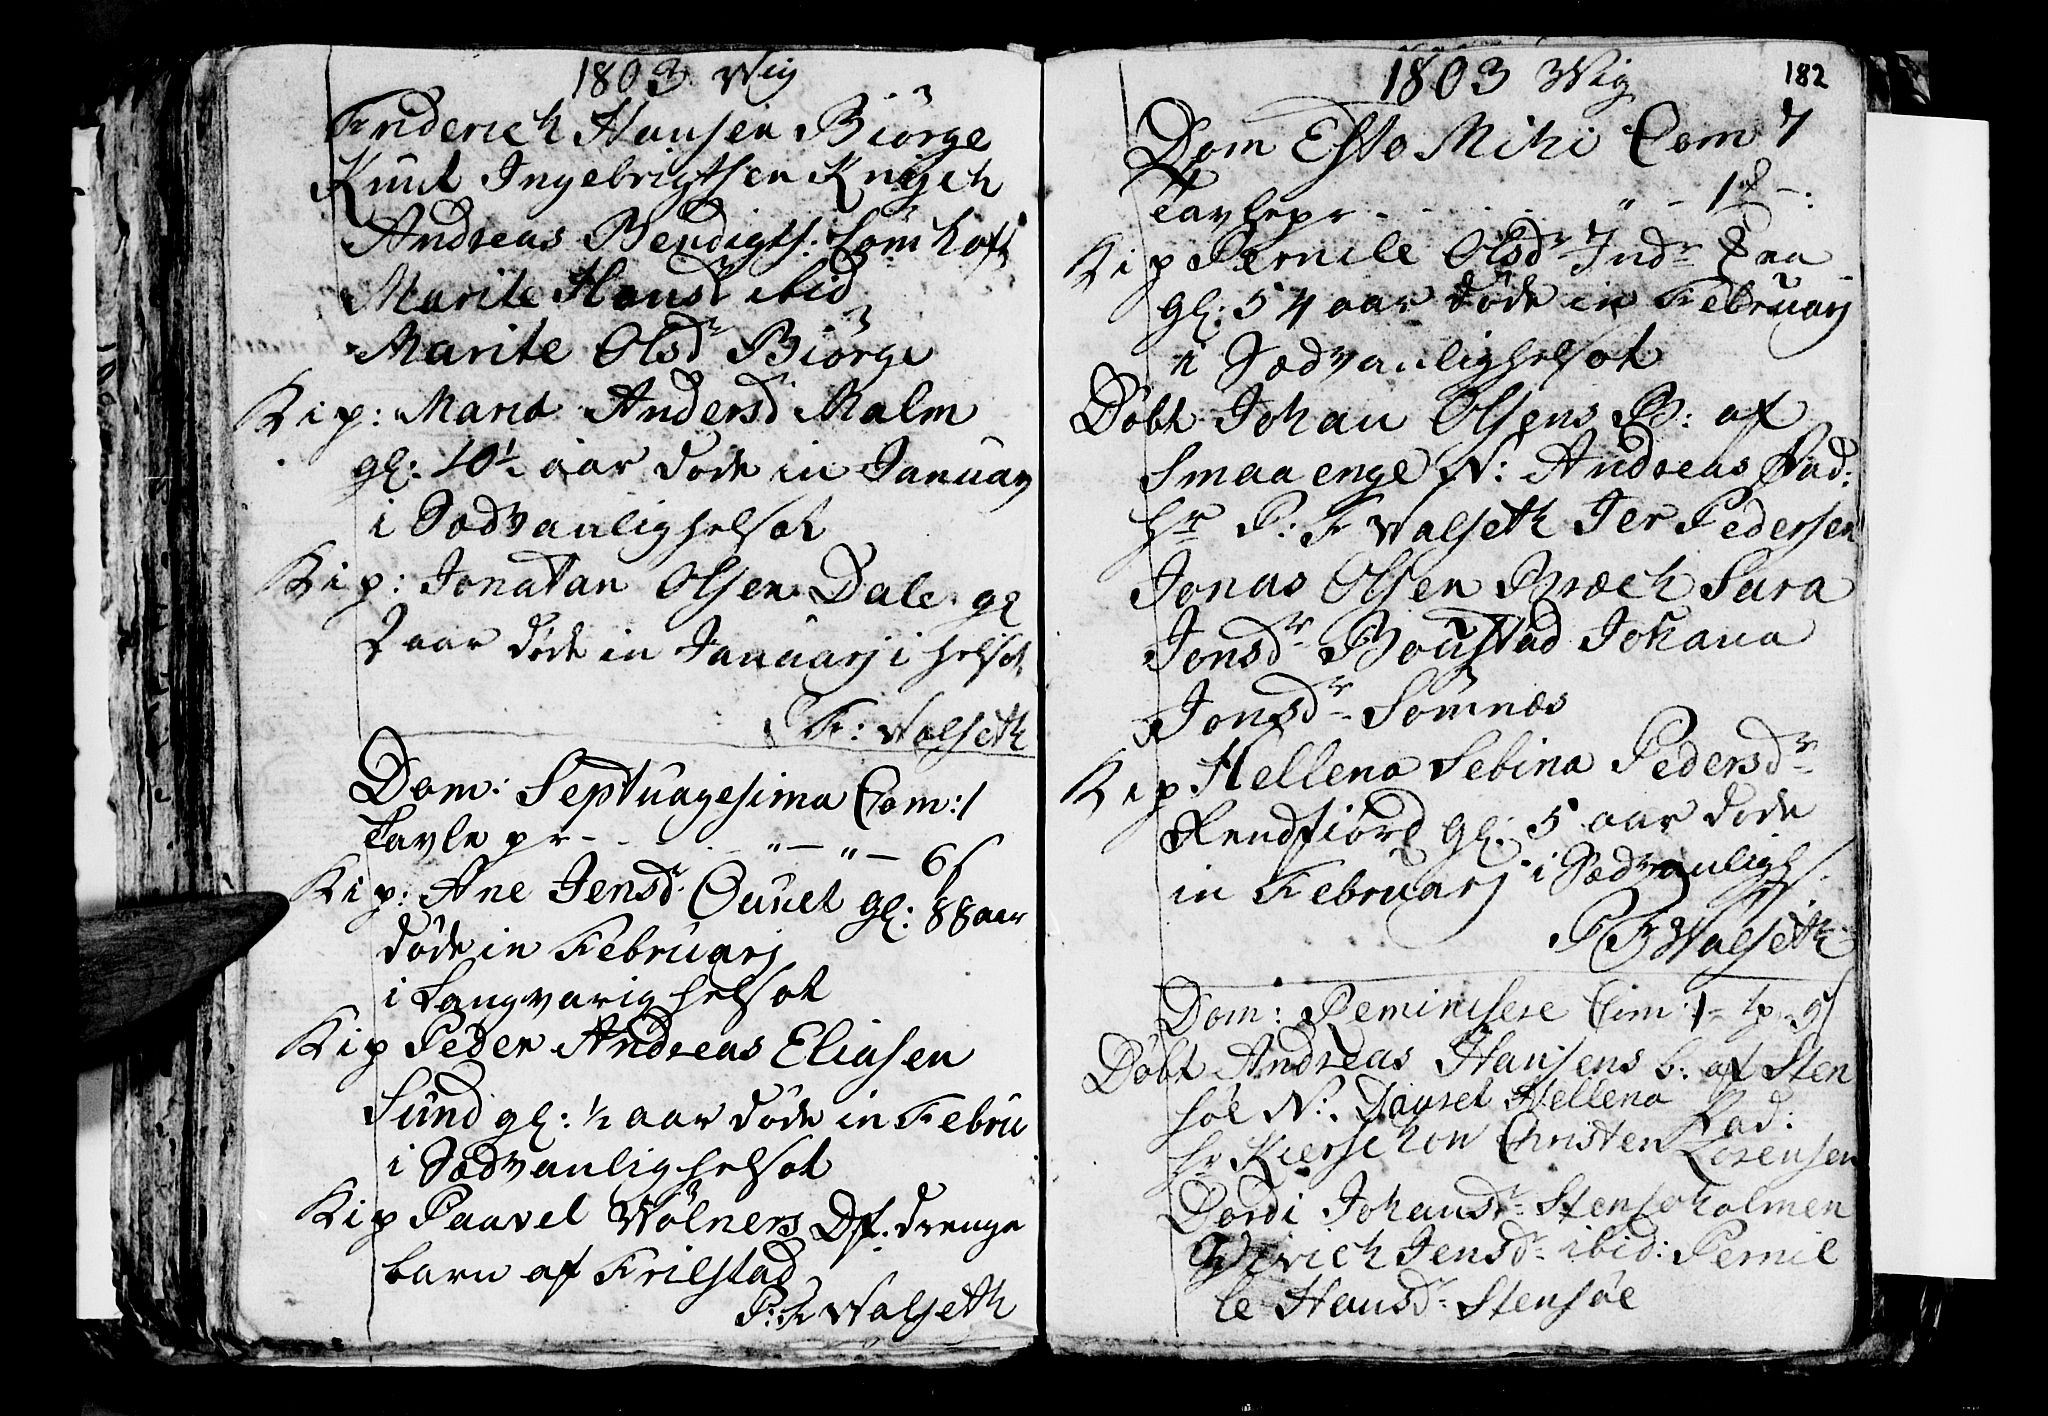 1803 Wig
Friderich Hansen Biörge
Knut Ingebrigtsen Knijch
Andreas Bendigts: Sömhoft
Marite Hansdr ibid
Marite Olsdr Biörge
Kip: Maria Andersd Malm
gl: 10½ aar döde in Januarj
i Sædvanlighelsot
Kip: Jonatan Olsen Dale gl
2 aar döde in Januarj i helsot
F: Walseth
Dom: Septuagesima Com: 1
Tavle pr - - - - " - " - 6 ß
Kip: Ane Jensdr Quuet gl: 88 aar
döde in Februarj
i Langvarighelsot
Kip Peder Andreas Eliasen
Sund gl: ½ aar döde in Febru
i Sædvanlighelsot
Kip Paavel Wölners Df: drenge
barn af Frilstad
P: F Walseth
1803 Wig
182
Dom Esto Mihi Com 7
Tavle pr - - - - " - 1 -:
Kip Pernile Olsdr Indr
gl: 54 aar döde in Februarj
i Sædvanlighelsot
Döbt Johan Olsens B: af
Smaaenge N: Andreas Fad:
Hr P: F Walseth Jer Pedersen
Jonas Olsen Bræch Sara
Jonsdr Boustad Johana
Jonsdr Sömnæs
Kip Hellena Sebina Pedersdr
Rendfiord gl: 5 aar döde
in Februarj i Sædvanligh
P F Walseth
Dom: Reminisere Com: 1 - tp - 9 ß
Döbt Andreas Hansens b: af Sten
söe N: Daaret Hellena Fad:
Hr Kierschow Christen Lorensen
Dordi Johansdr Stensöholmen
Wivich Jensdr ibid: Pernil
le Hansdr Stensöe